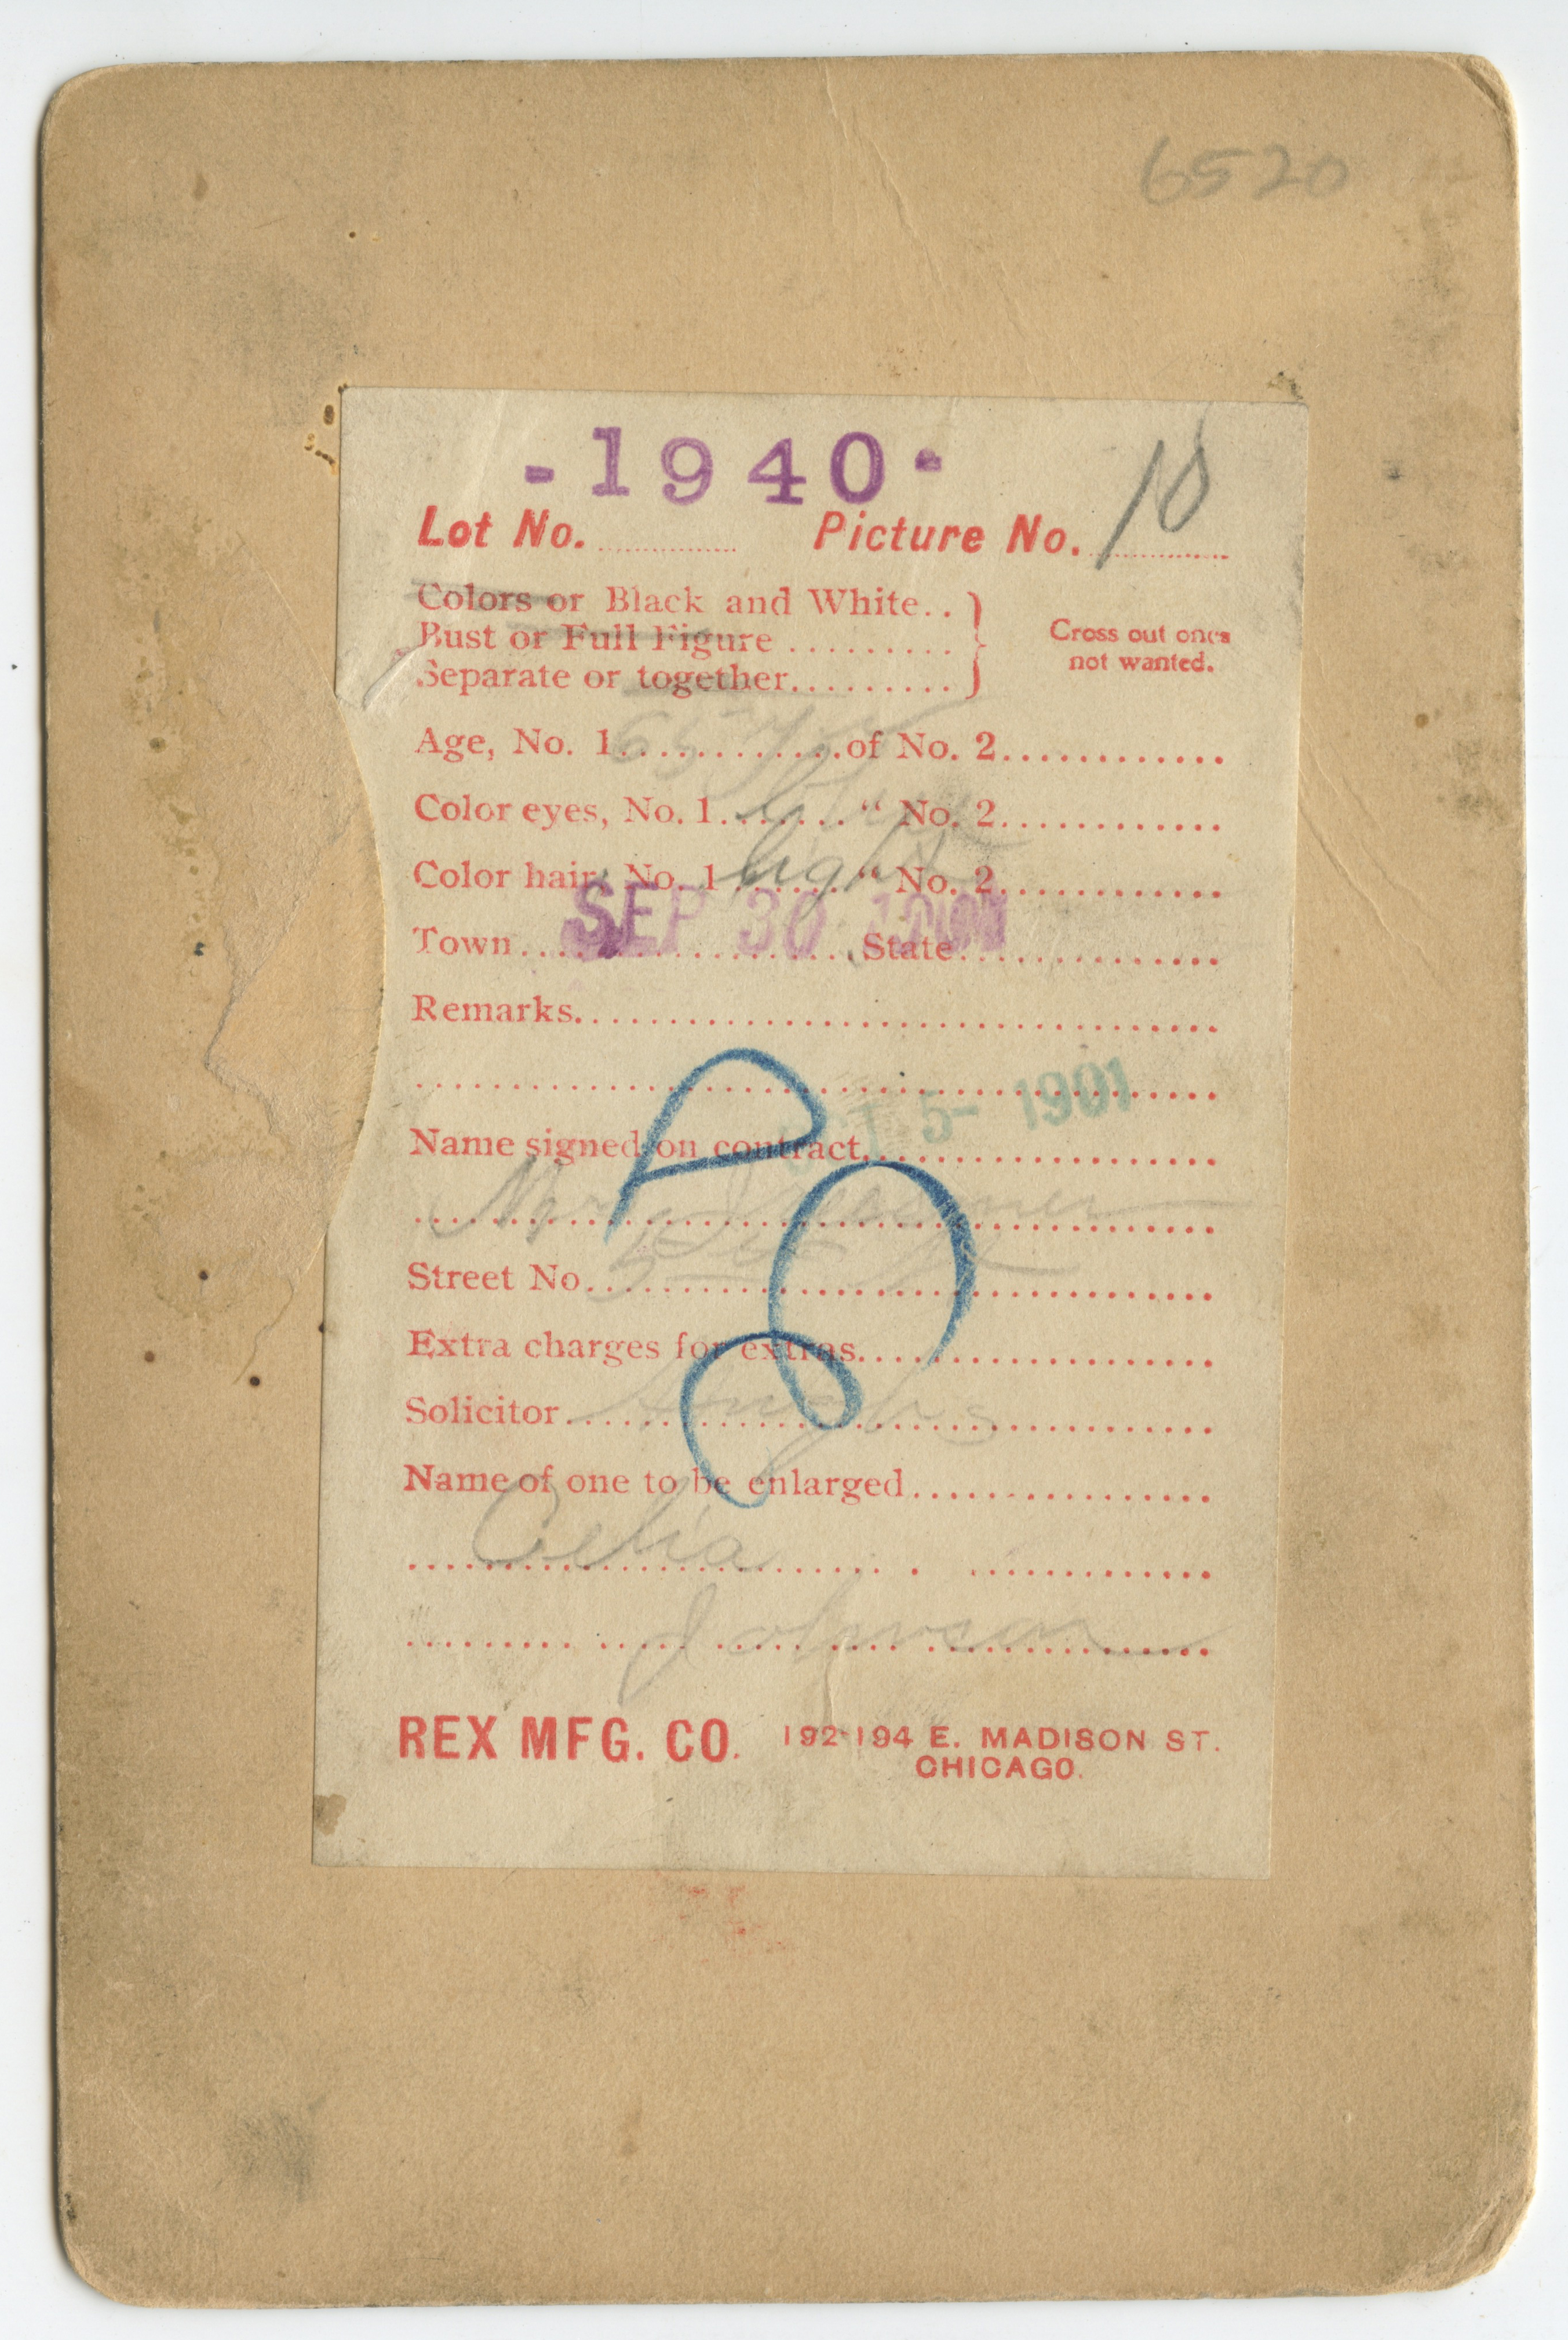 6520
-1940-
Lot No. .............. Picture No. 10
Colors or Black and White..
Bust or Full Figure .........
Separate or together.........
Cross out ones
not wanted.
Age, No. 1 65 of No. 2.............
Color eyes, No. 1........ “ No. 2.............
Color hair, No. 1 light “ No. 2.............
SEP 30
Town................ State................
Remarks.....................................
5- 1901
Name signed on contract.....................
Mrs
Street No....................................
Extra charges for extras.....................
Solicitor....................................
Name of one to be enlarged.................
Celia
Johnson
REX MFG. CO. 192-194 E. MADISON ST.
CHICAGO.